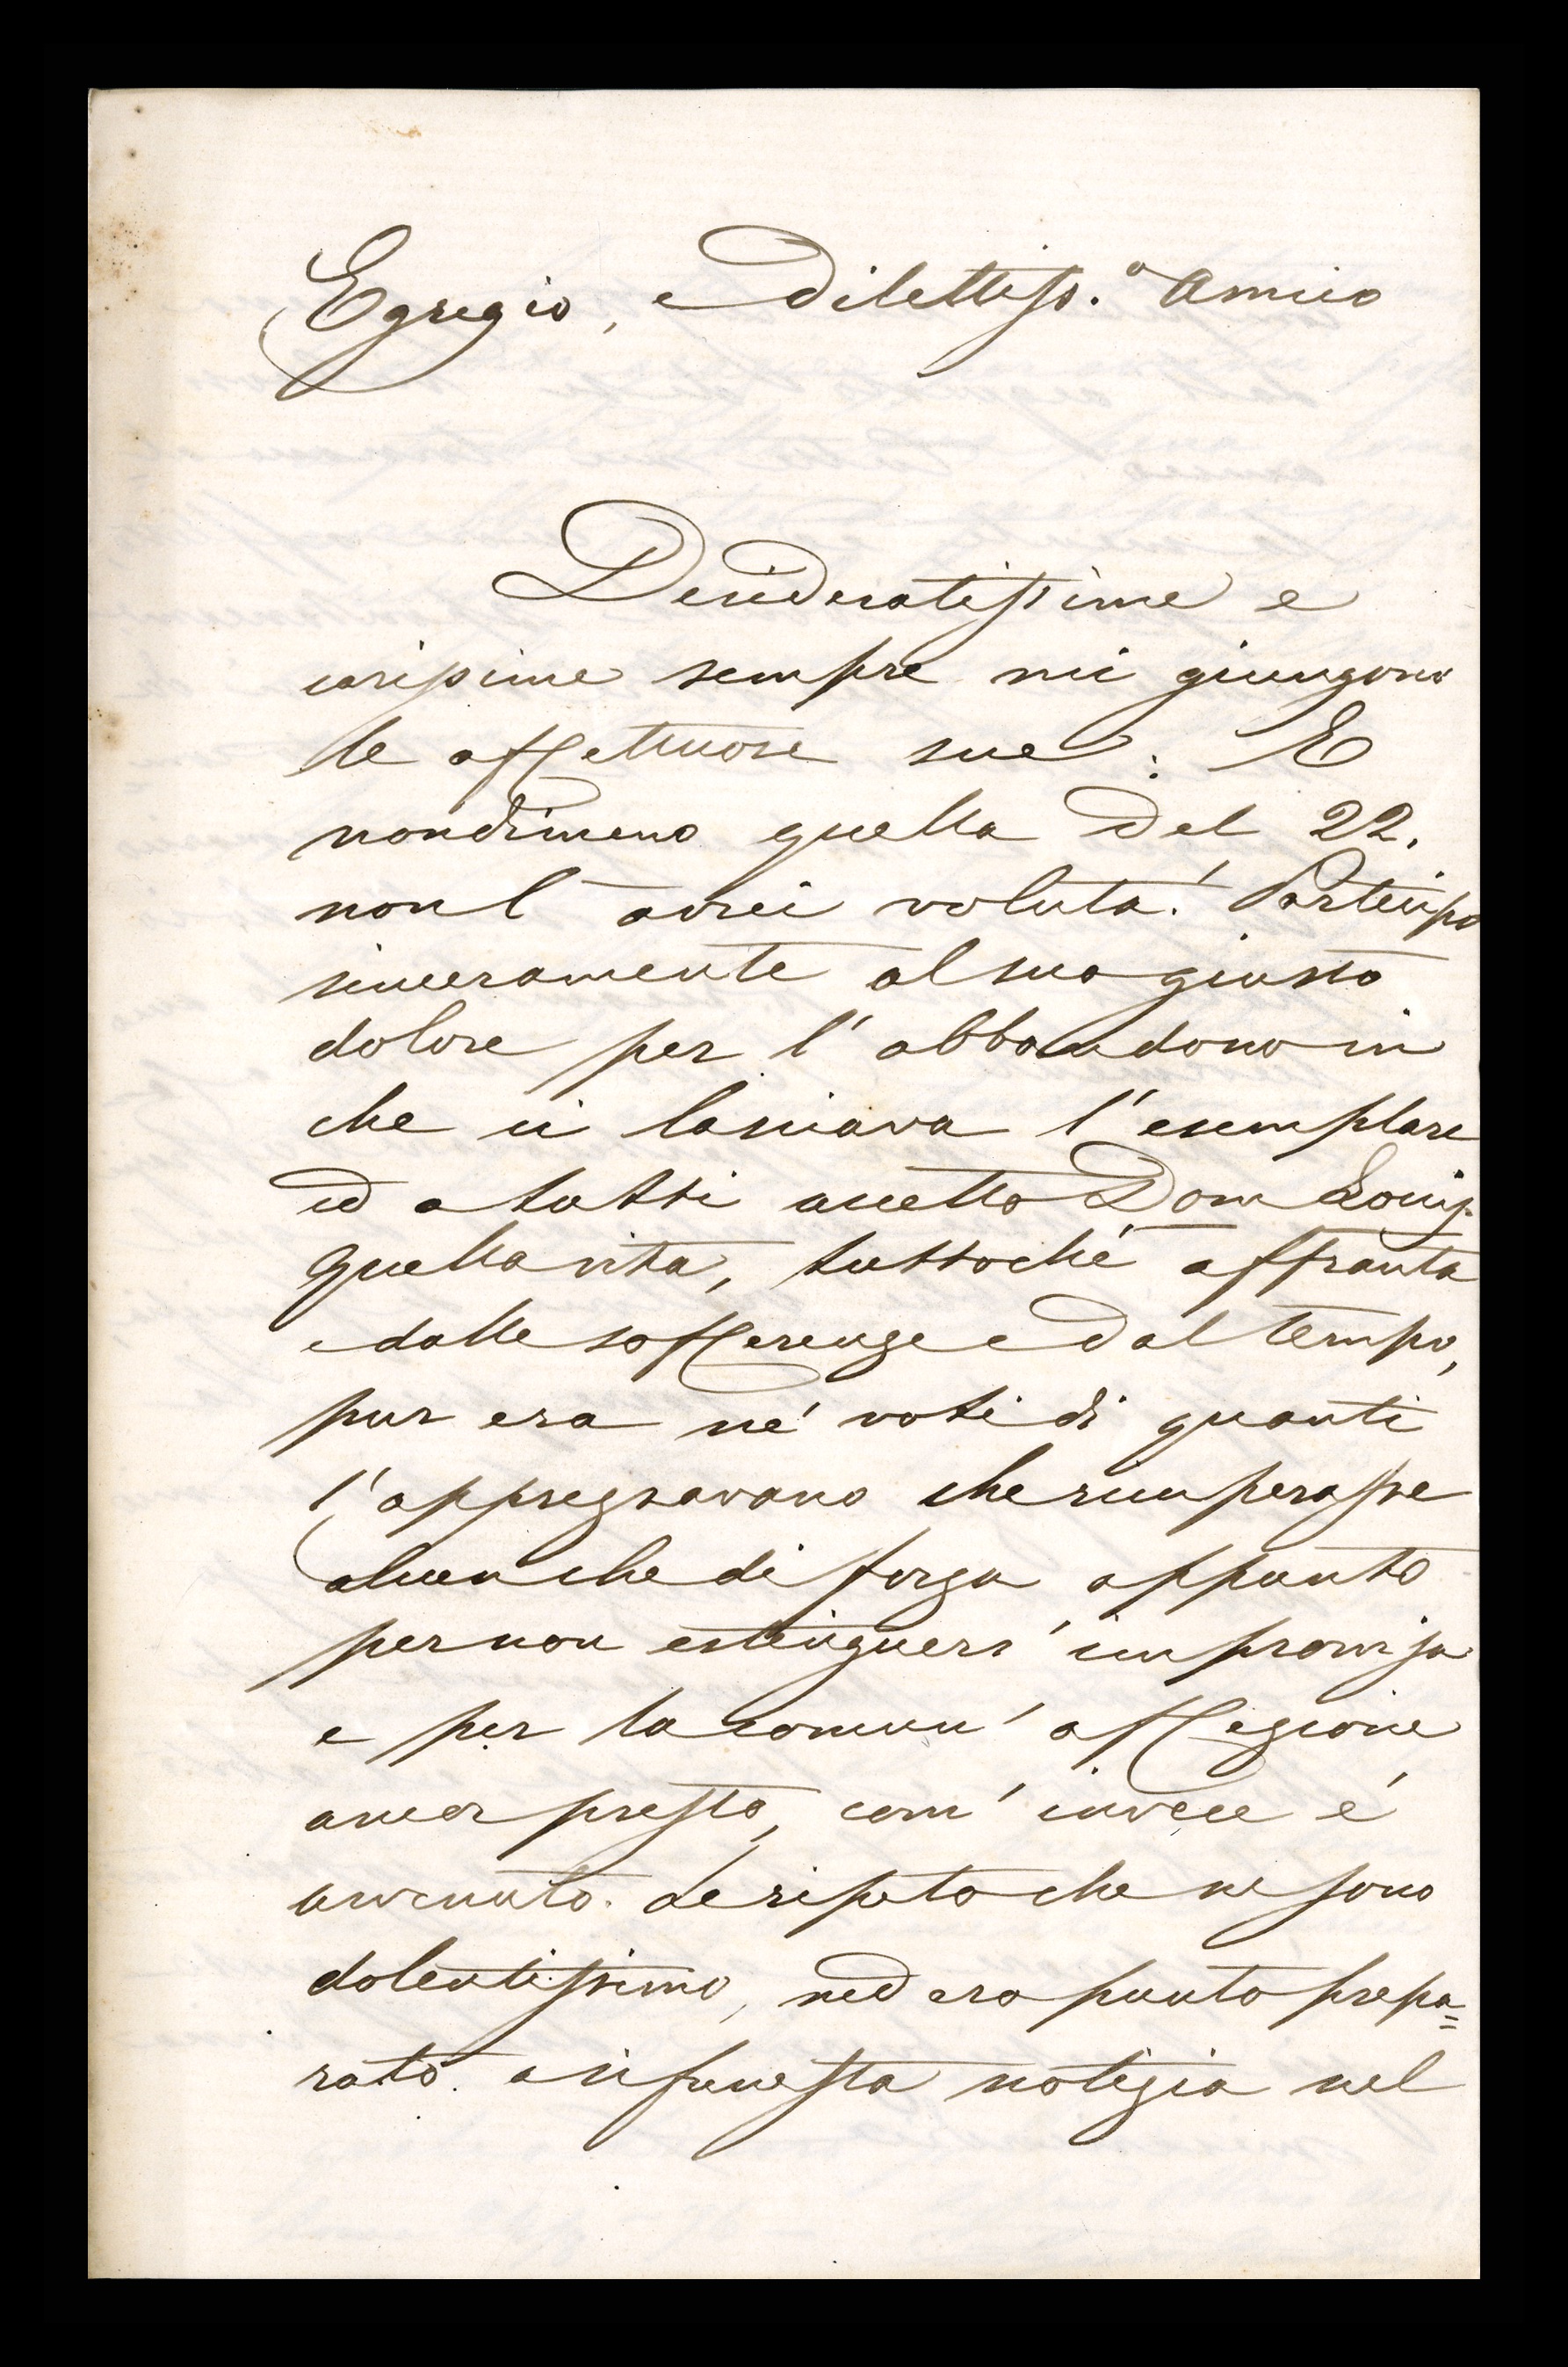 Egregio, e dilettiss.º Amico
Desideratissime e
carissime sempre mi giungono
le affettuose sue: E
nondimeno quella del 22.
non l' avrei voluta! Partecipo
sinceramente al suo giusto
dolore per l' abbandono in
che ci lasciava l' esemplare
ed a tutti accetto Dom
Quella vita, tuttoché affranta
e dalle sofferenze e dal tempo,
pur era né voti di quanti
l' apprezzavano che
alcun che di forza appunto
per non estinguersi improvisa
e per la comun' affezione
ancor presto, com' invece é
avvenuto. Le ripeto che ne sono
dolentissimo, ned ero punto prepa=
rato a si funesta notizia nel